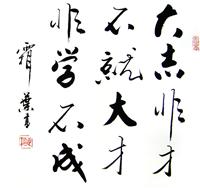 大志非才
不就大才
非学不成
霜葉书